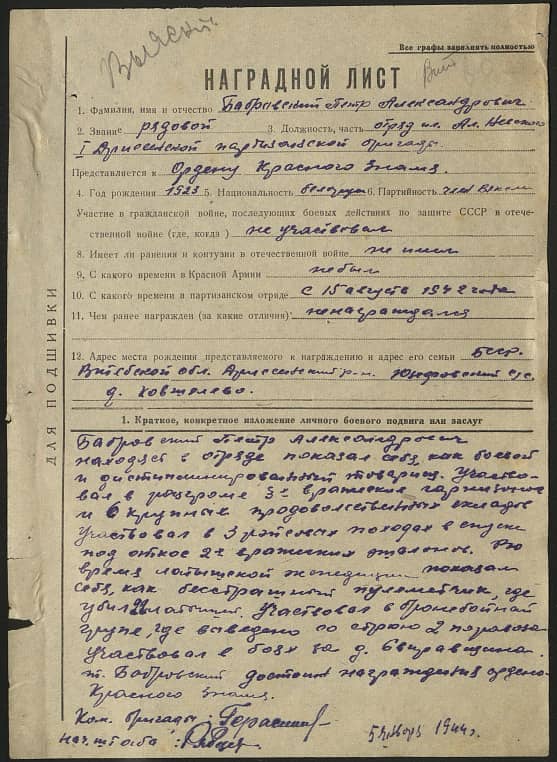 Выясн.
Все графы заполнять полностью
НАГРАДНОЙ ЛИСТ
1. Фамилия, имя и отчество Бабровский Петр Александрович
2. Звание рядовой 3. Должность, часть отряд им. Ал. Невского
I Дриссенской партизанской бригады.
Представляется к Ордену Красного Знамя.
4. Год рождения 1923 5. Национальность белорус 6. Партийность член
Участие в гражданской войне, последующих боевых действиях по защите СССР и отече-
ственной войне (где, когда) не участвовал
8. Имеет ли ранения и контузии в отечественной войне не имел
9. С какого времени в Красной Армии не был
10. С какого времени в партизанском отряде с 15 августа 1942 года
11. Чем ранее награжден (за какие отличия) ненаграждался
12. Адрес места рождения представляемого к награждению и адрес его семьи БССР.
Витебской обл. Дриссенский р-н. с/с.
д.
ДЛЯ ПОДШИВКИ
1. Краткое, конкретное изложение личного боевого подвига или заслуг
Бабровский Петр Александрович
находясь в отряде показал себя, как боевой
и дисциплинированный товарищ. Участво-
вал в разгроме 3х вражеских гарнизонов
и 6 крупных продовольственных складов
Участвовал в 3 рэйсовых походах в спуске
под откос 2х вражеских эшалонов. Во
время латышской экспедиции показал
себя, как бесстрашный пулеметчик, где
убил латышей. Участвовал в бронебойной
групе, где выведено со строю 2 паравоза
Участвовал в боях за д.
т. Бабровский достоин награждения ордено
Красного Знамя.
Ком. бригады: Герасимов
нач. штаба:
5 января 1944 г.